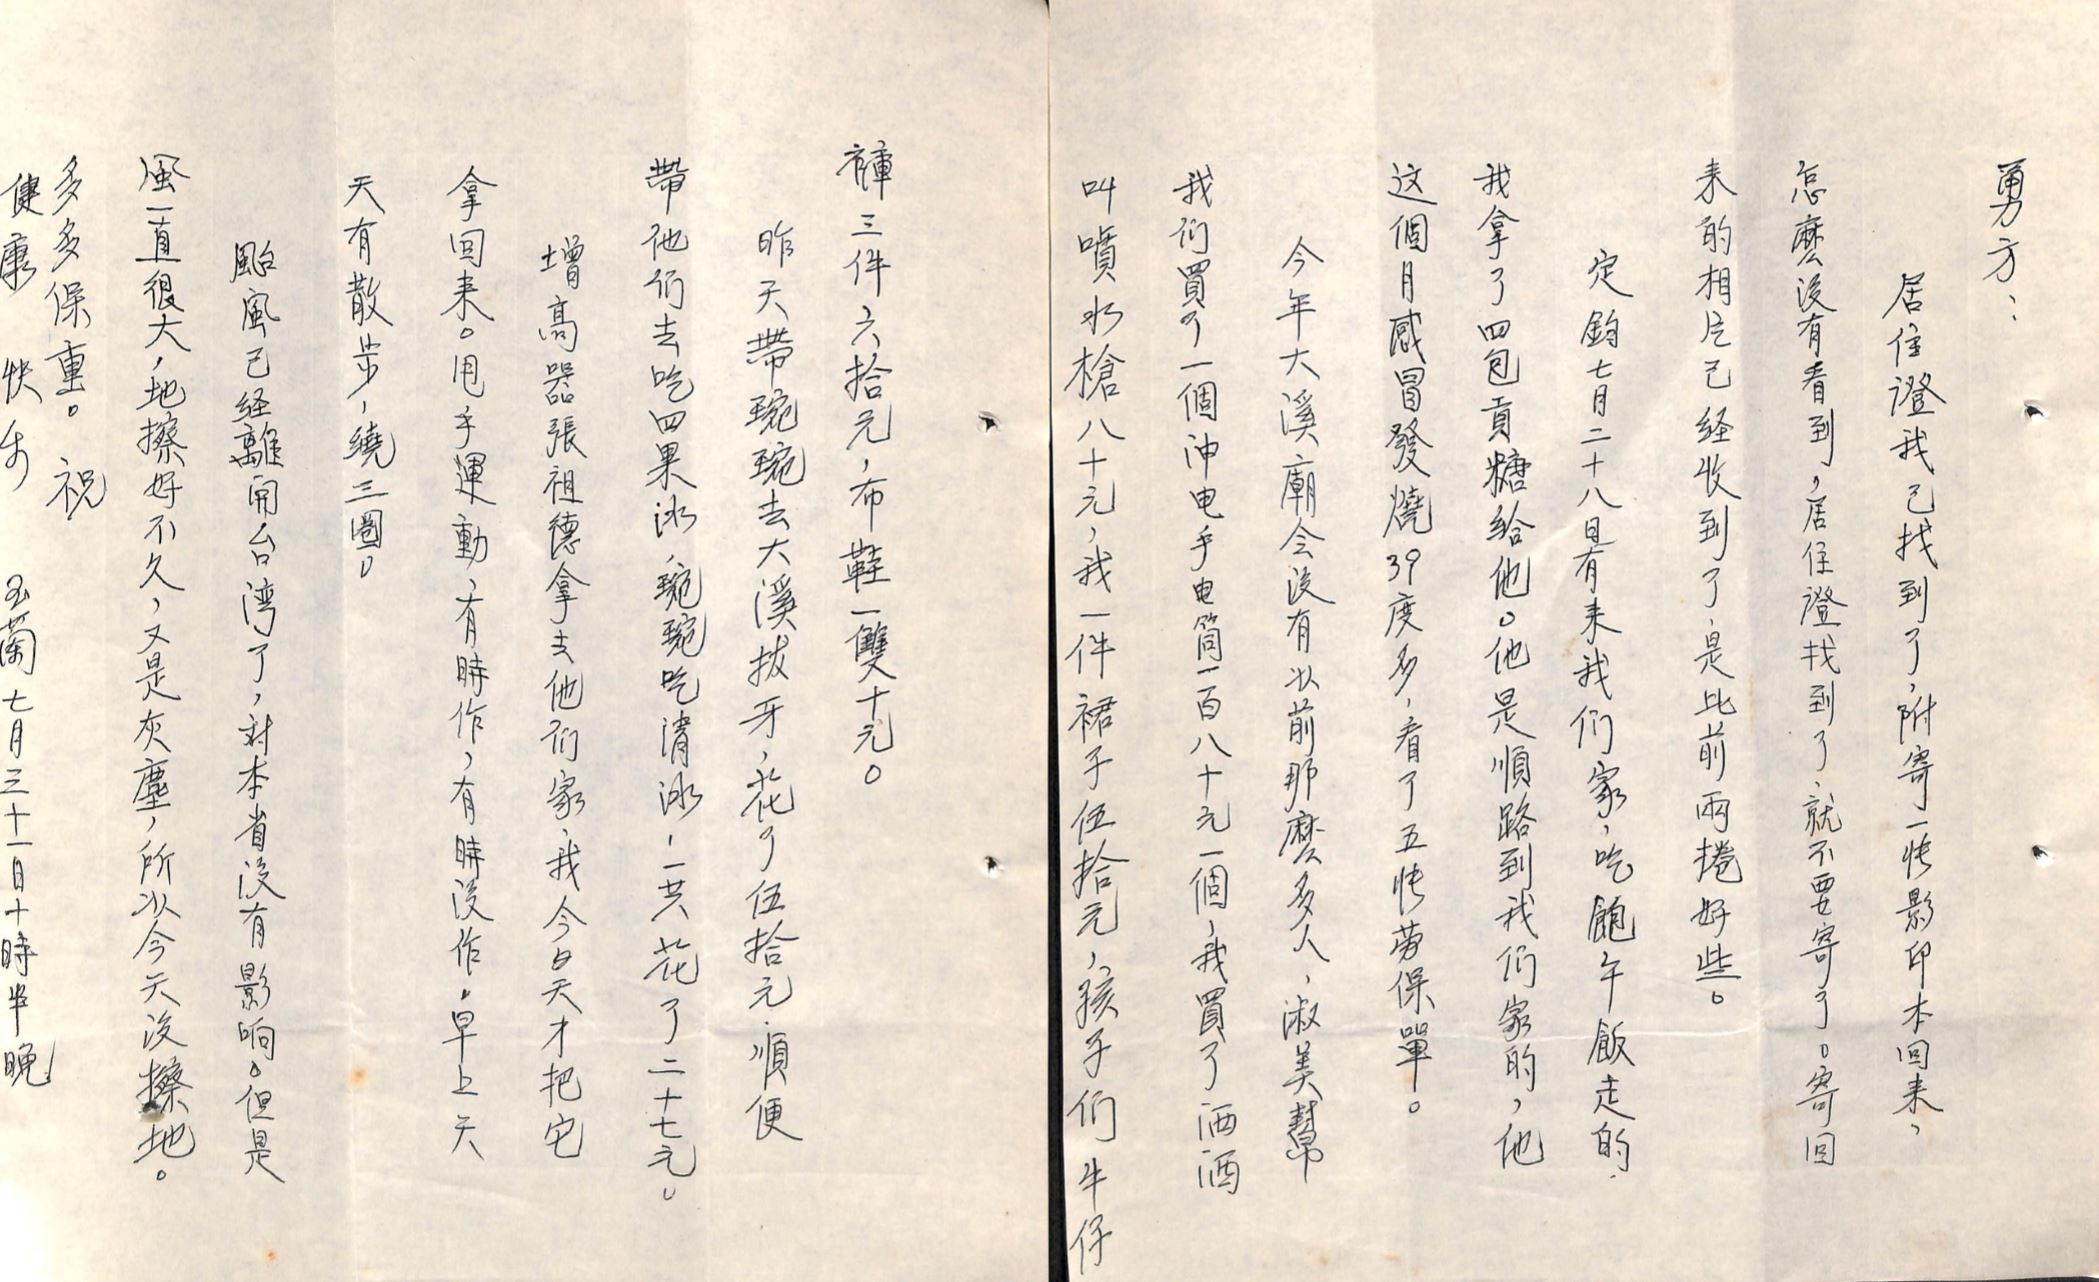 勇方：
居住證我已找到了，附寄一张影印本回来，
怎麼沒有看到，居住證找到了，就不要寄了。寄回
来的相片已经收到了，是比前兩捲好些。
定鈞七月二十八日有来我们家，吃飽午飯走的，
我拿了四包貢糖給他。他是順路到我们家的，他
这個月感冒發燒39度多，看了五张劳保單。
今年大溪廟会沒有以前那麼多人，淑美幫
我们買了一個沖电手电筒一百八十元一個，我買了洒洒
叫噴水槍八十元，我一件裙子伍拾元，孩子们牛仔
褲三件六拾元，布鞋一雙十元。
昨天帶琬琬去大溪拔牙，花了伍拾元，順便
帶他们去吃四果冰，琬琬吃清冰，一共花了二十七元。
增高器張祖德拿去他们家，我今天才把它
拿回来。甩手運動，有時作，有時沒作。早上天
天有散步，繞三圈。
颱風已经離開台湾了，對本省沒有影响。但是
風一直很大，地擦好不久，又是灰塵，所以今天沒擦地。
多多保重。 祝
健康 快乐
玉蘭 七月三十一日十時半晚